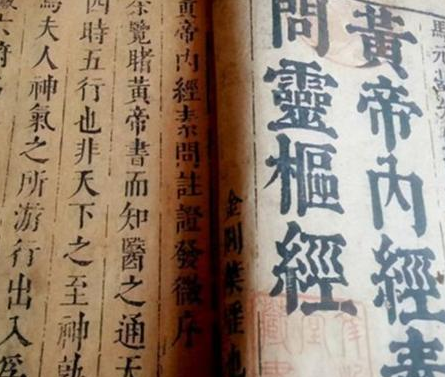 黃帝內經素
問靈樞經
黃帝內經素問註證發微序
余覽睹黃帝書而知醫之通天
四時五行也非天下之至神孰
夫人神氣之所游行出入
六府